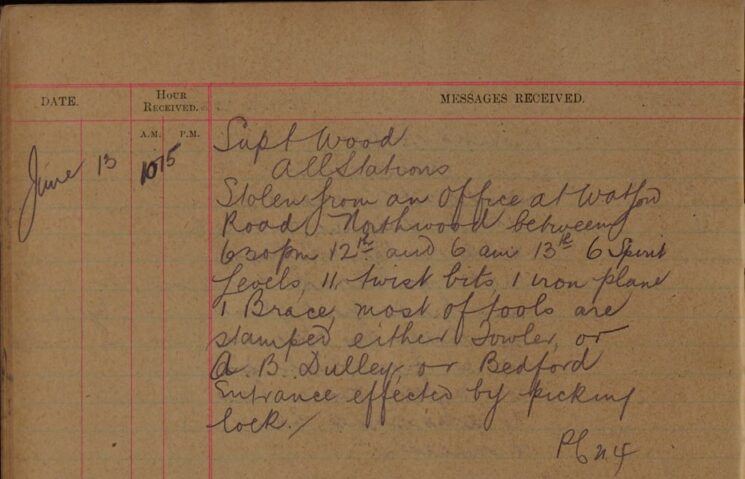 DATE. HOUR RECEIVED. MESSAGES RECEIVED.
A.M. P.M.
June 13 1015 Supt Wood
All Stations
Stolen from an Office at Watford
Road Northwood between
630 pm 12th and 6 am 13th 6 Spirit
Levels, 11 twist bits, 1 iron plane
1 Brace, most of tools are
stamped either Fowler, or
A. B. Dulley, or Bedford
Entrance effected by picking
lock.
PC